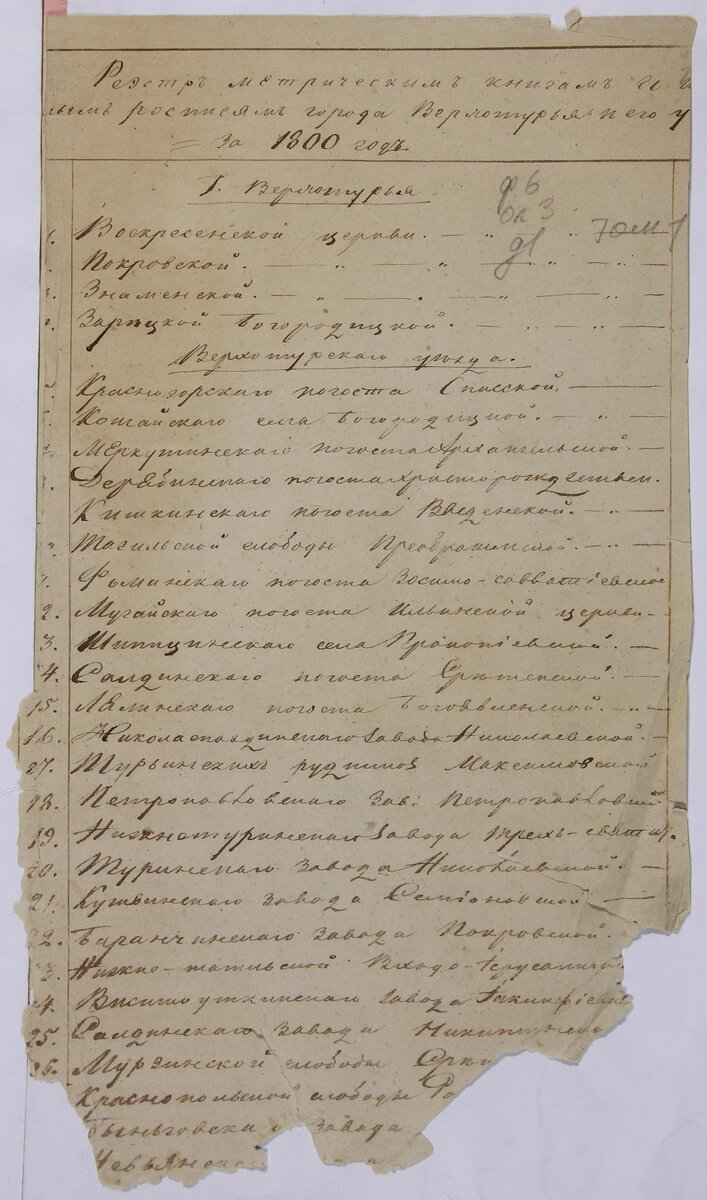 Реэстръ метрическимъ книгамъ и
нымъ росписямъ города Верхотурья и его у
= За 1800 годъ.
Г. Верхотурья
ф 6
оп 3
д1
Воскресенской церкви. — " —
Покровской. — " — " — " —
Знаменской. — " — . — " — " —
Зарѣцкой Богородицкой. — . — " —
Верхотурскаго уѣзда.
Красногорскаго погоста Спасской. —
Кошайскаго села Богородицкой. — " —
Меркушинскаго погоста Архангельской. —
Дерябинскаго погоста Христорождествен.
Кишкинскаго погоста Введенской. — " —
Тагильской слободы Преображенской. — " —
Фоминскаго погоста Зосимо-савватіевской
2. Мугайскаго погоста Ильинской церкви —
3. Шипицинскаго села Прокопіевской. —
4. Салдинскаго погоста Срѣтенской. —
15. Лялинскаго погоста Богоявленской. — " —
16. Николаепавдинскаго завода Николаевской. —
17. Турьинскихъ рудников Максимовской
18. Петропавловскаго Зав: Петропавловской
19. Нижнетуринскаго завода Трехъ-святит.
20. Туринскаго завода Николаевской. —
21. Кушвинскаго завода Симіоновской —
22. Баранчинскаго завода Покровской.
3. Нижне-тагильской Входо-Іерусалим
4. Висимоуткинскаго завода
25. Салдинскаго завода Никитинско
26. Мурзинской слободы Срѣ
Краснопольской слободы
Быньговскаго завода
Невьянска